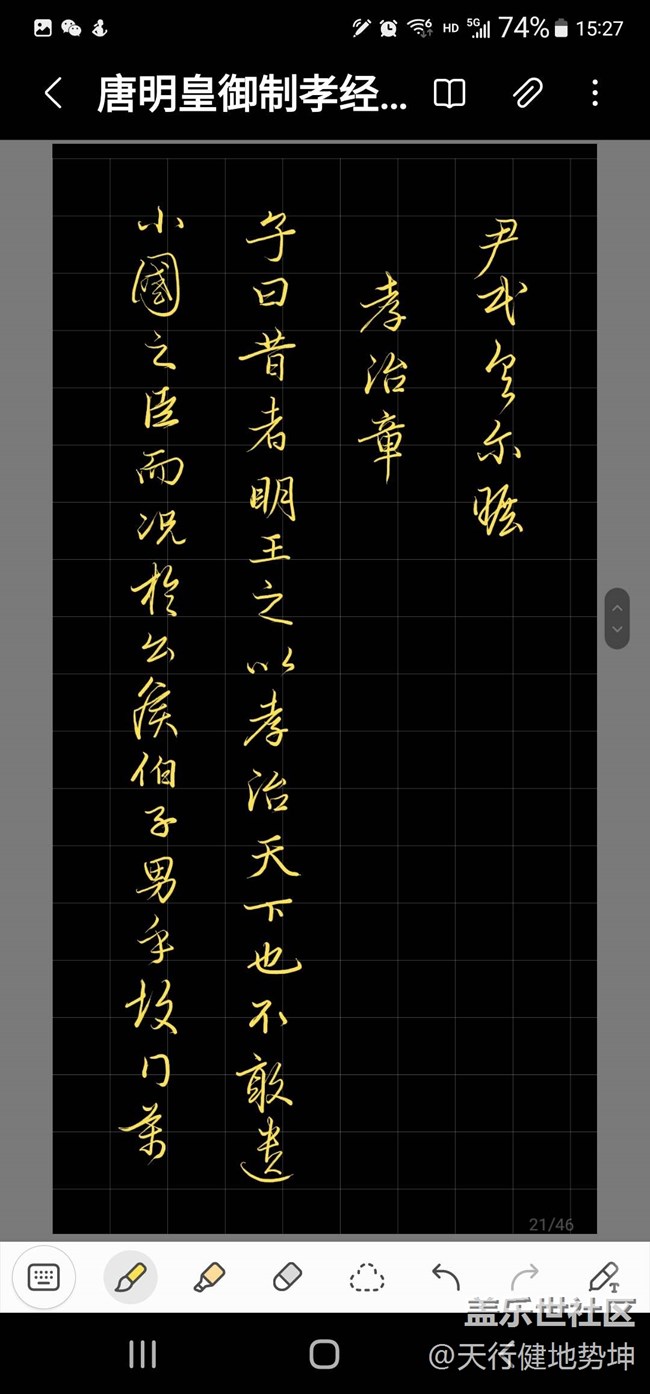 6 HD 5G 74% 15:27
唐明皇御制孝经...
尹民具尔瞻
孝治章
子曰昔者明王之以孝治天下也不敢遺
小國之臣而况於公侯伯子男乎故得萬
21/46
T
盖乐世社区
@天行健地势坤